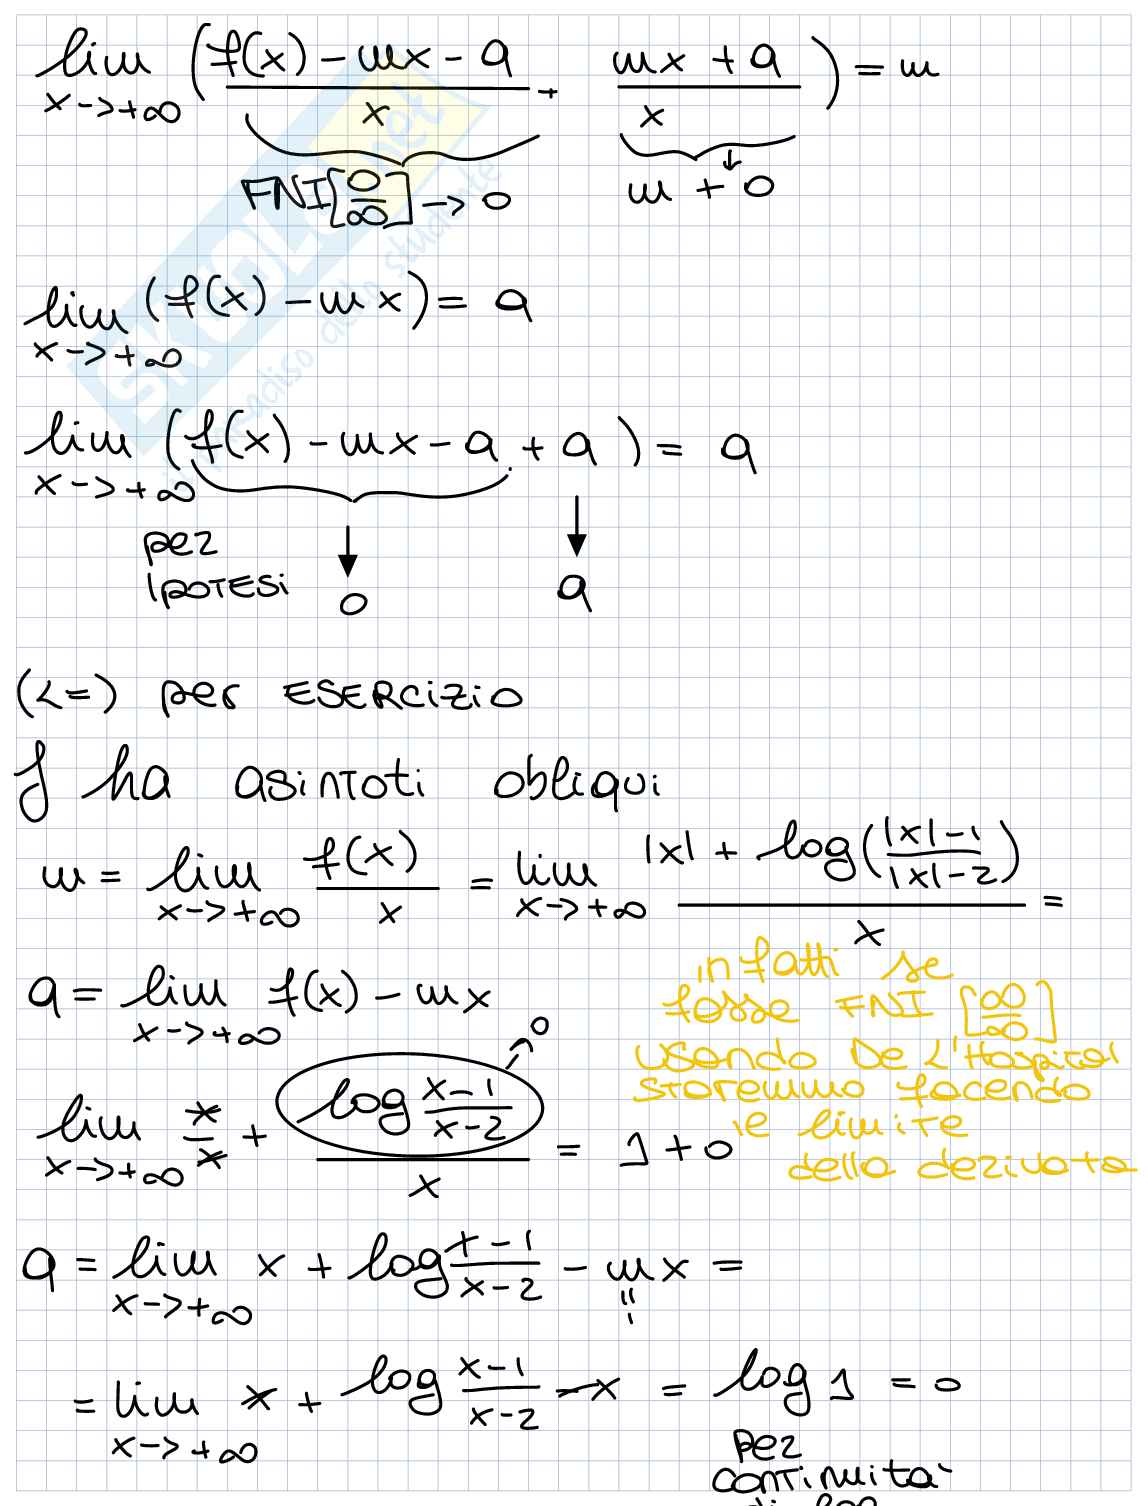 lim x->+∞ ( (f(x) - mx - a)/x + (mx + a)/x ) = m
FNI [0/∞] -> 0 m + 0
lim x->+∞ (f(x) - mx) = a
lim x->+∞ (f(x) - mx - a + a) = a
per
Ipotesi 0 a
(<=) per ESERCIZIO
f ha asintoti obliqui
m = lim x->+∞ f(x)/x = lim x->+∞ (|x| + log(|x|-1/|x|-2))/x =
a = lim x->+∞ f(x) - mx
infatti se
fosse FNI [∞/∞]
usando De L'Hospital
staremmo facendo
il limite
della derivata
lim x->+∞ x/x + (log (x-1)/(x-2))/x = 1 + 0
0
a = lim x->+∞ x + log (x-1)/(x-2) - mx =
" 1
= lim x->+∞ x + log (x-1)/(x-2) - x = log 1 = 0
per
continuità
di log
SKUOLA.net
il paradiso dello studente